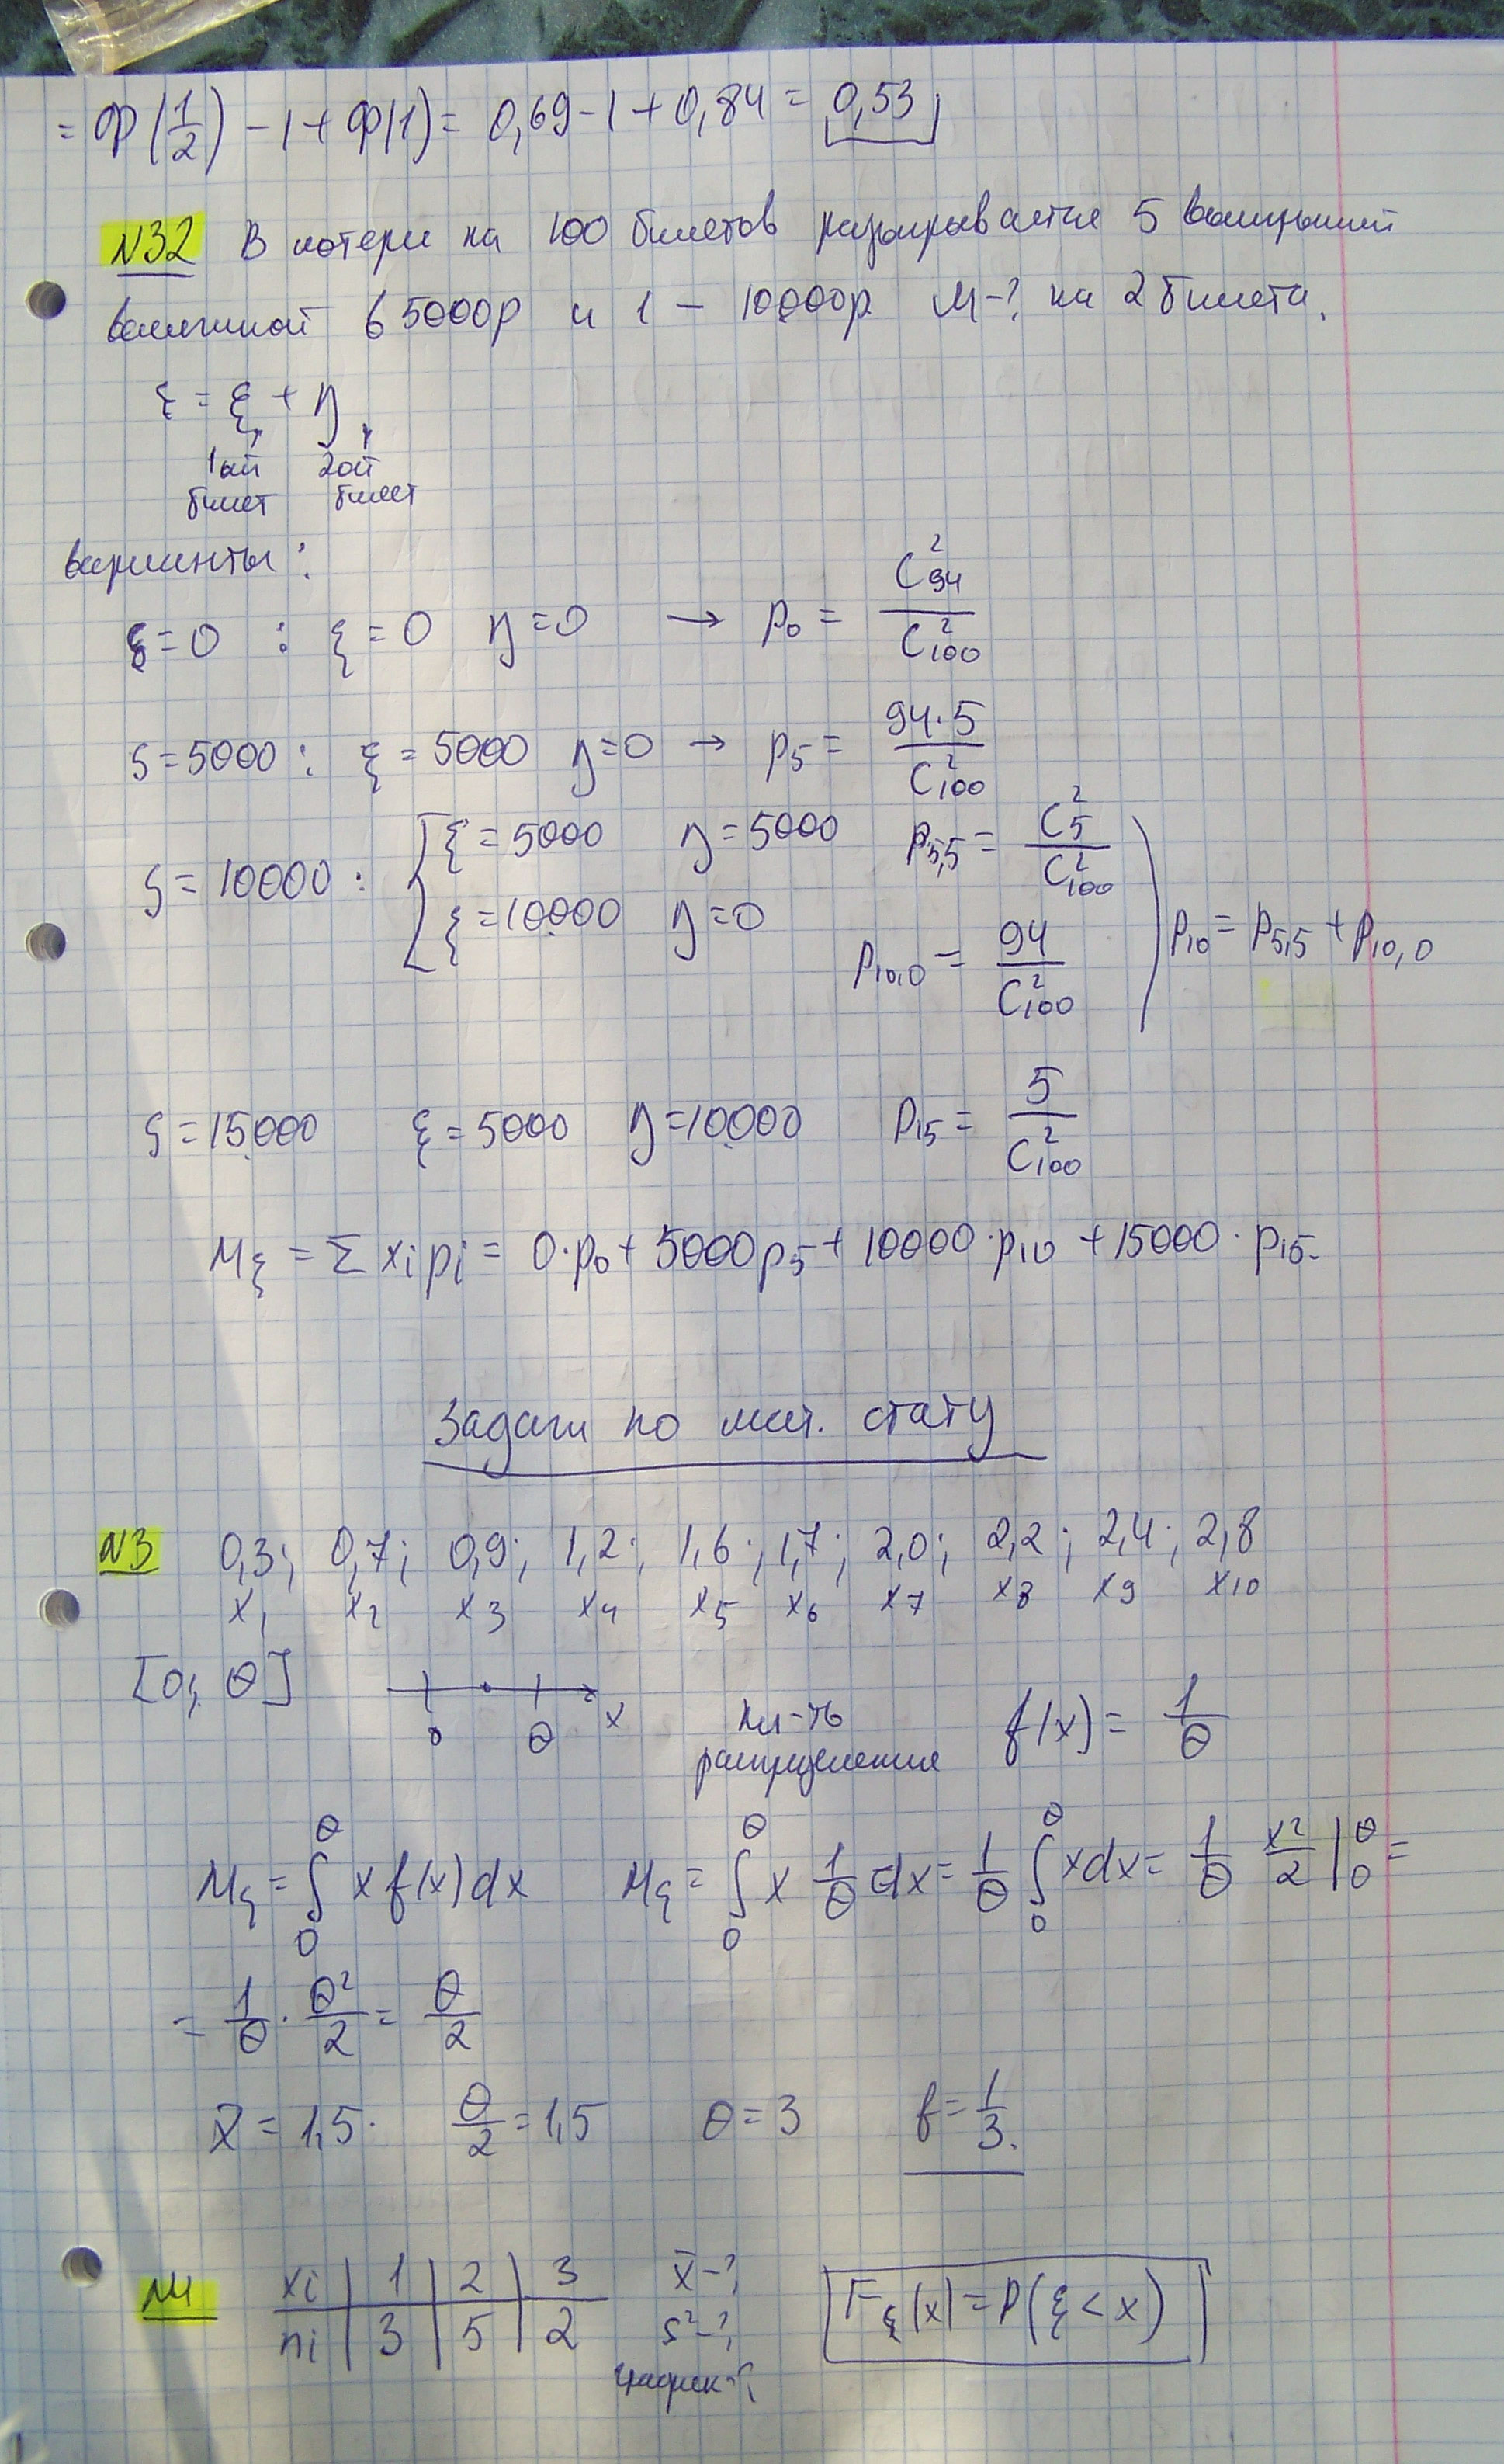 = Ф(1/2) - 1 + Ф(1) = 0,69 - 1 + 0,84 = 0,53
N32 В лотерее на 100 билетов разыгрывается 5 выигрышей
величиной в 5000р и 1 - 10000р. М-? на 2 билета.
ξ = ξ + η
1ый 2ой
билет билет
варианты:
ζ = 0 : ξ = 0 η = 0 → p₀ = C²₉₄ / C²₁₀₀
ζ = 5000 : ξ = 5000 η = 0 → p₅ = 94·5 / C²₁₀₀
ζ = 10000 : [ ξ = 5000 η = 5000 p₅,₅ = C²₅ / C²₁₀₀
ξ = 10000 η = 0 p₁₀,₀ = 94 / C²₁₀₀ ) p₁₀ = p₅,₅ + p₁₀,₀
ζ = 15000 ξ = 5000 η = 10000 p₁₅ = 5 / C²₁₀₀
Mξ = Σ xᵢpᵢ = 0·p₀ + 5000p₅ + 10000·p₁₀ + 15000·p₁₅.
Задачи по мат. стату
N3 0,3; 0,7; 0,9; 1,2; 1,6; 1,7; 2,0; 2,2; 2,4; 2,8
x₁ x₂ x₃ x₄ x₅ x₆ x₇ x₈ x₉ x₁₀
[0; θ] 0 θ x пл-ть f(x) = 1/θ
распределения
Mξ = ∫₀^θ x f(x) dx Mξ = ∫₀^θ x 1/θ dx = 1/θ ∫₀^θ x dx = 1/θ x²/2 |₀^θ =
= 1/θ · θ²/2 = θ/2
x̄ = 1,5. θ/2 = 1,5 θ = 3 f = 1/3.
N4 xi | 1 | 2 | 3 x̄-? Fξ(x) = P(ξ < x)
ni | 3 | 5 | 2 s²-?
график-?